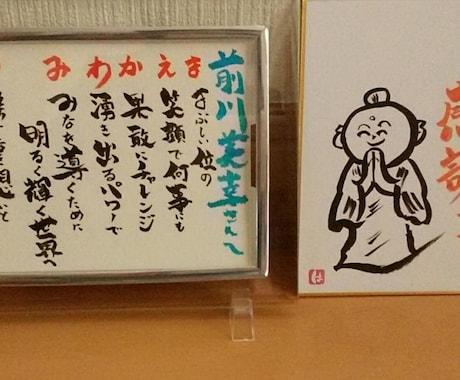 前川美幸さんへ
まえかわみ
まぶしい位の
笑顔で何事にも
果敢にチャレンジ
湧き出るパワーで
みなを導くために
明るく輝く世界へ